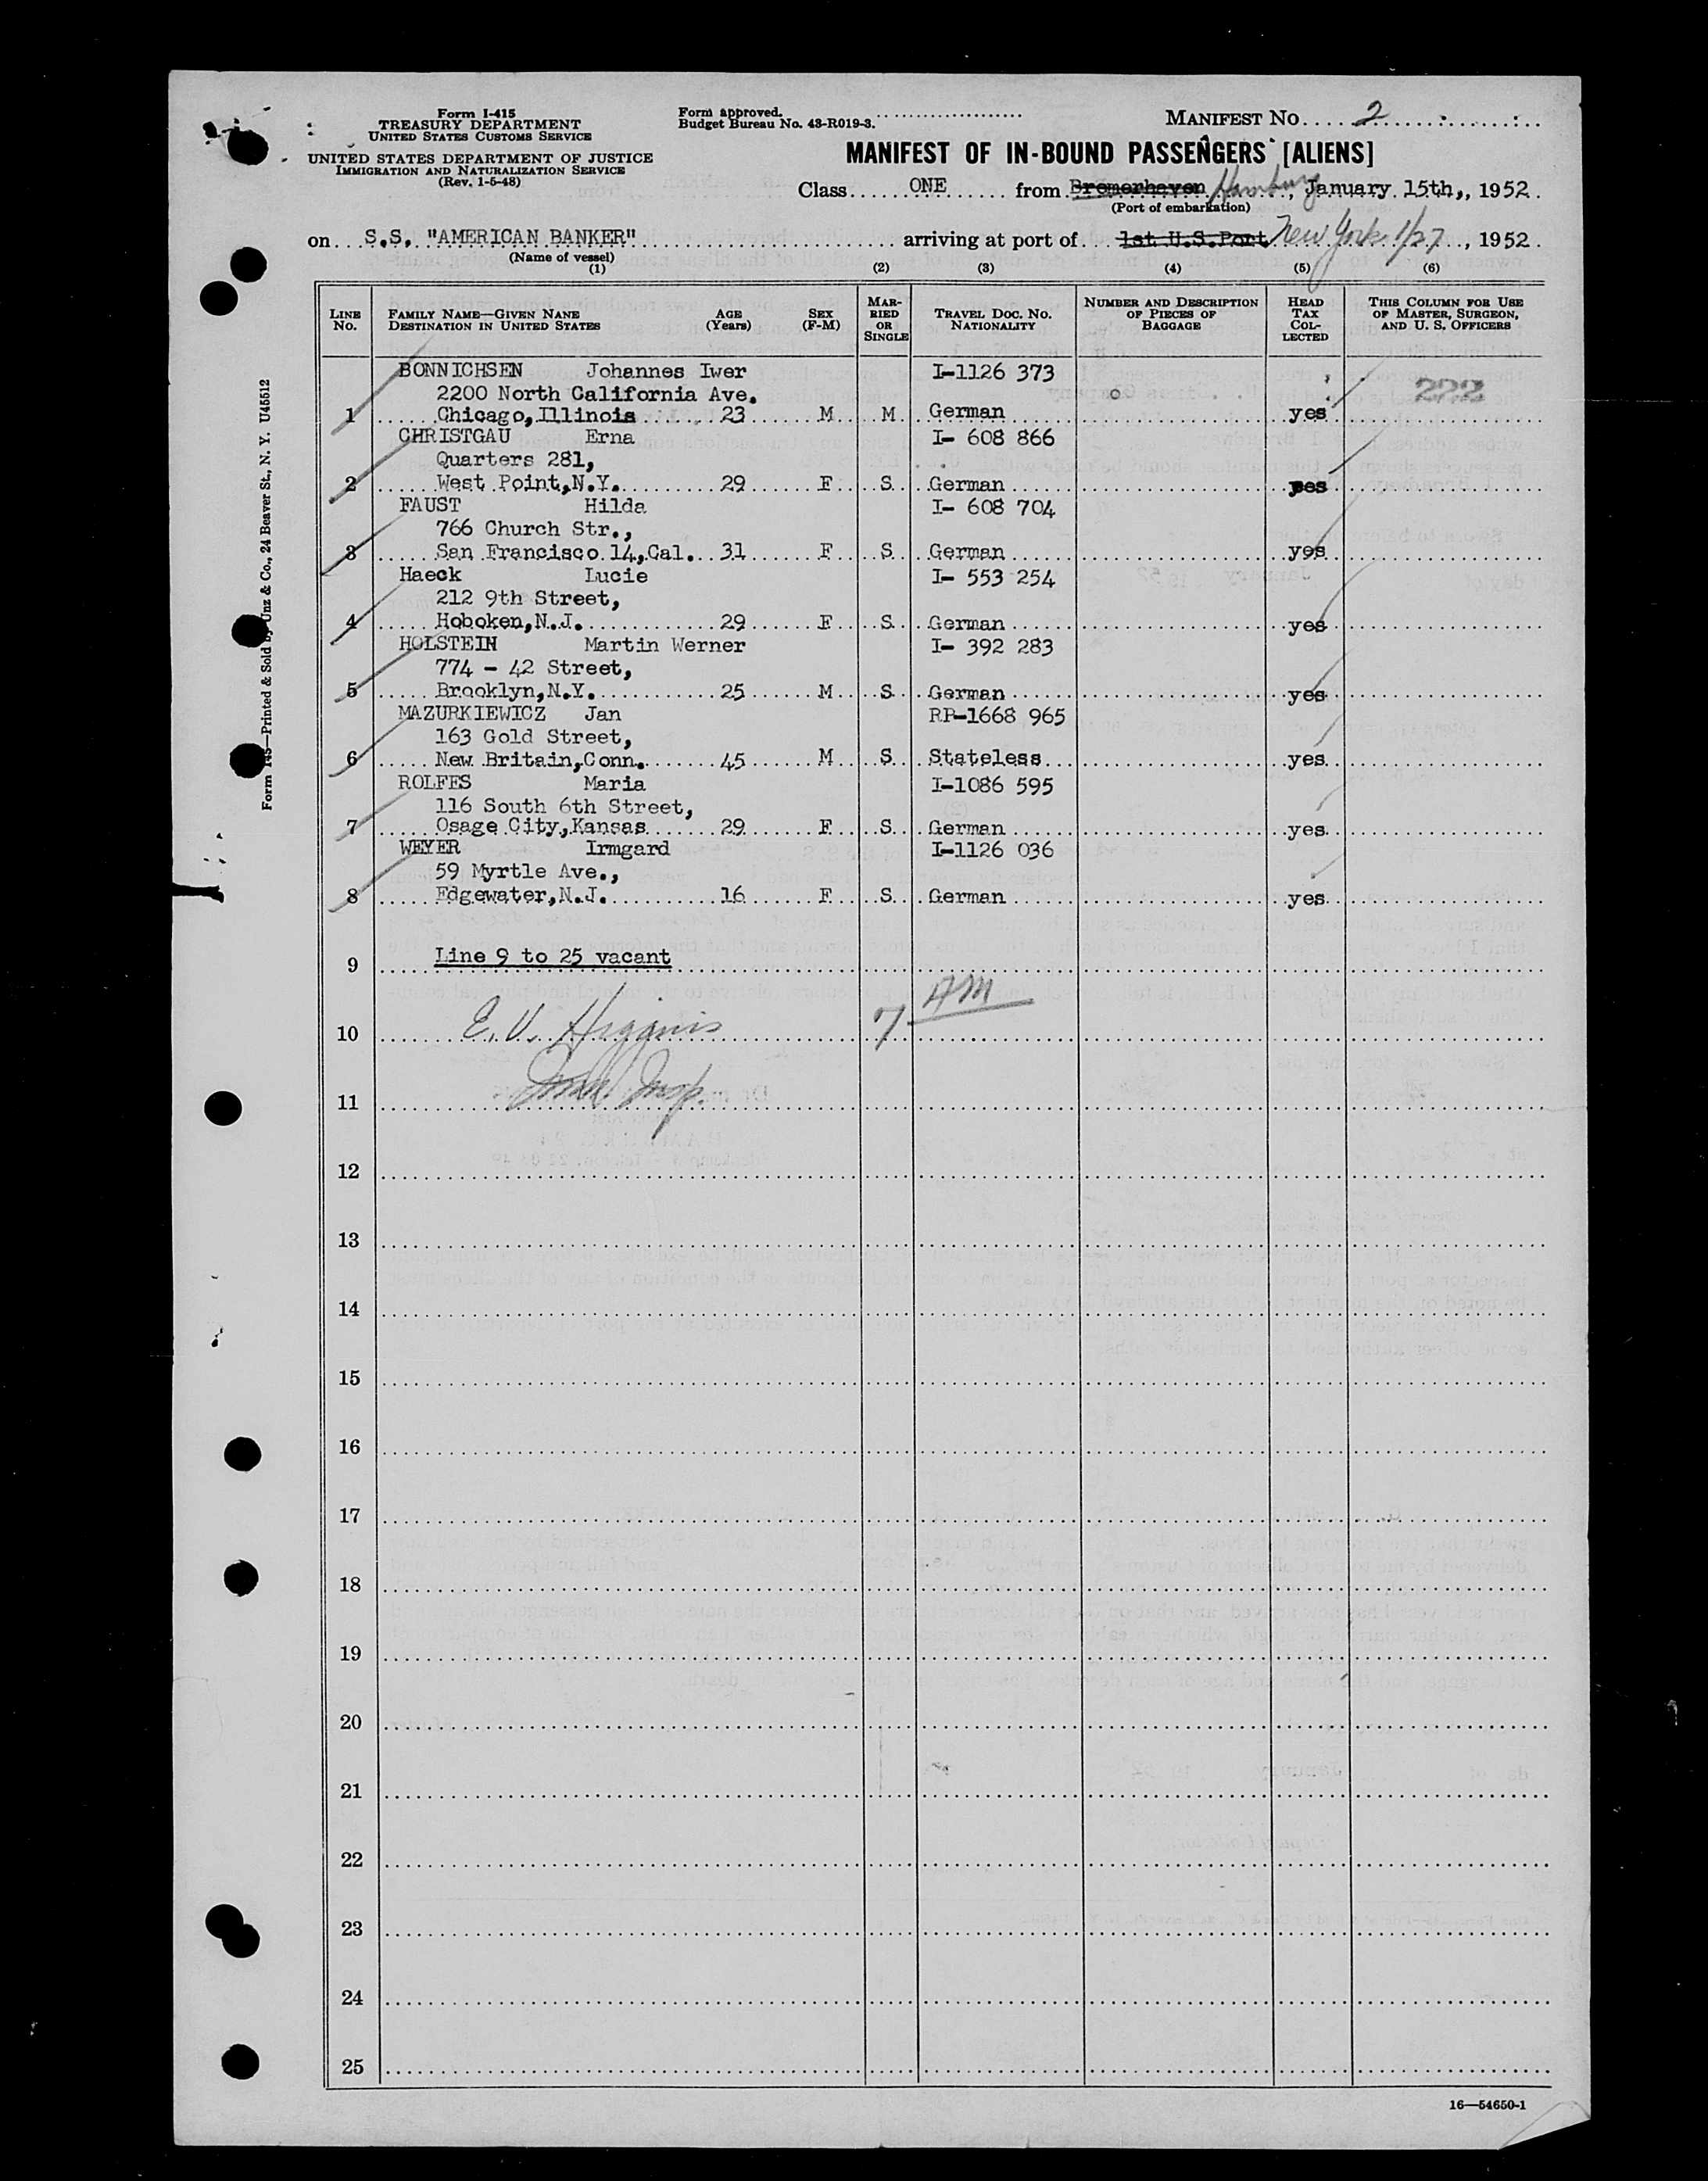 Form I-415
TREASURY DEPARTMENT
UNITED STATES CUSTOMS SERVICE
UNITED STATES DEPARTMENT OF JUSTICE
IMMIGRATION AND NATURALIZATION SERVICE
(Rev. 1-5-48)
Form approved.
Budget Bureau No. 43-R019-3.
MANIFEST NO. 2
MANIFEST OF IN-BOUND PASSENGERS [ALIENS]
Class ONE from Bremerhaven Hamburg, January 15th,, 1952.
(Port of embarkation)
on S.S. "AMERICAN BANKER" arriving at port of 1st U.S.Port New York 1/27, 1952.
(Name of vessel)
(1) (2) (3) (4) (5) (6)
LINE NO.
FAMILY NAME—GIVEN NANE
DESTINATION IN UNITED STATES
AGE (Years)
SEX (F-M)
MARRIED OR SINGLE
TRAVEL DOC. NO.
NATIONALITY
NUMBER AND DESCRIPTION OF PIECES OF BAGGAGE
HEAD TAX COLLECTED
THIS COLUMN FOR USE OF MASTER, SURGEON, AND U. S. OFFICERS
BONNICHSEN Johannes Iwer I-1126 373
2200 North California Ave. 222
1 Chicago,Illinois 23 M M German yes
CHRISTGAU Erna I- 608 866
Quarters 281,
2 West Point,N.Y. 29 F S German yes
FAUST Hilda I- 608 704
766 Church Str.,
3 San Francisco 14,Cal. 31 F S German yes
Haeck Lucie I- 553 254
212 9th Street,
4 Hoboken,N.J. 29 F S German yes
HOLSTEIN Martin Werner I- 392 283
774 - 42 Street,
5 Brooklyn,N.Y. 25 M S German yes
MAZURKIEWICZ Jan RP-1668 965
163 Gold Street,
6 New Britain,Conn. 45 M S Stateless yes
ROLFES Maria I-1086 595
116 South 6th Street,
7 Osage City,Kansas 29 F S German yes
WEYER Irmgard I-1126 036
59 Myrtle Ave.,
8 Edgewater,N.J. 16 F S German yes
9 Line 9 to 25 vacant
10 E. V. Higgins 7 AM
11 Imm. Insp.
12
13
14
15
16
17
18
19
20
21
22
23
24
25
16—54650-1
Form 145—Printed & Sold by Unz & Co., 24 Beaver St., N. Y. U45512